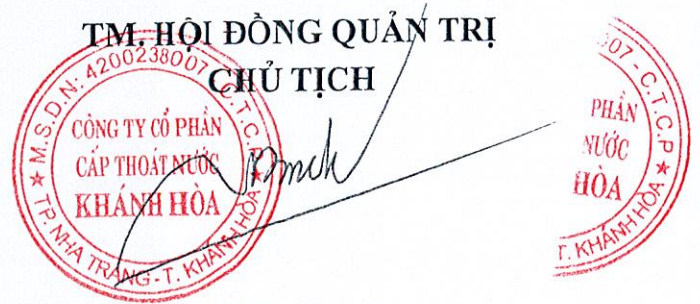 TM. HỘI ĐỒNG QUẢN TRỊ
CHỦ TỊCH
M.S.D.N: 4200238007 - C.T.C.P
CÔNG TY CỔ PHẦN
CẤP THOÁT NƯỚC
KHÁNH HÒA
TP. NHA TRANG - T. KHÁNH HÒA
007 - C.T.C.P
PHẦN
NƯỚC
HÒA
T. KHÁNH HÒA